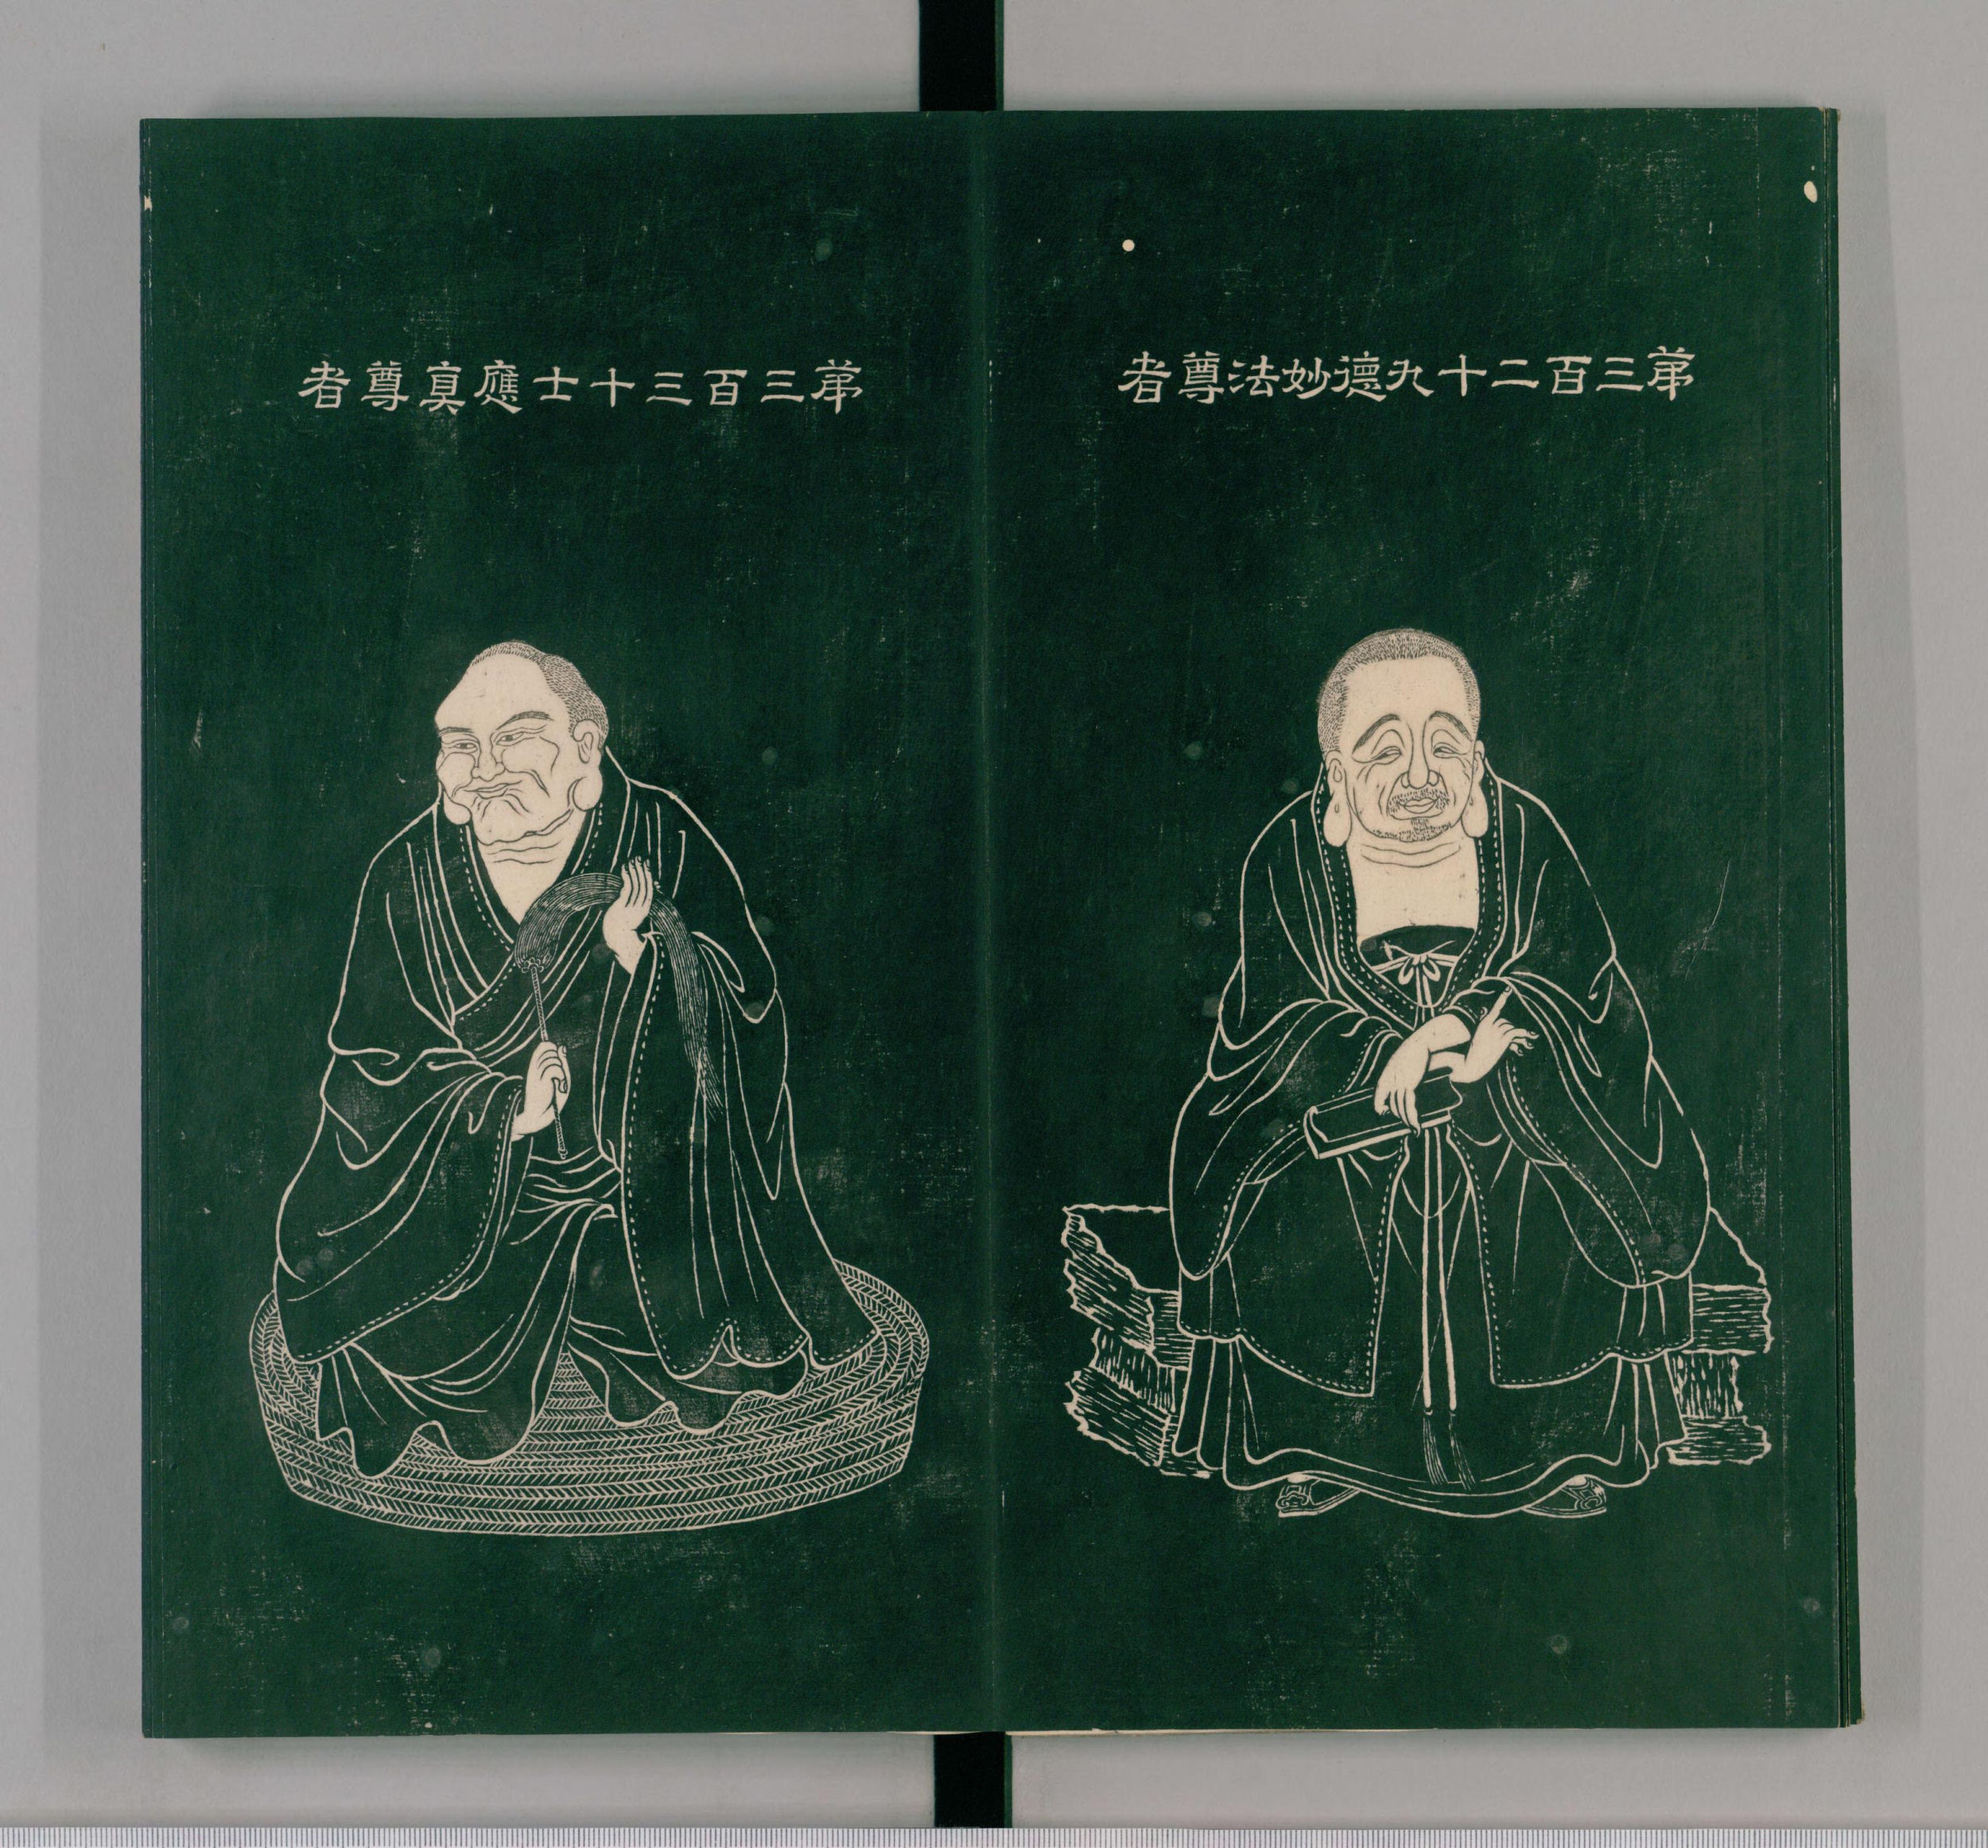 苐三百二十九德妙法尊者
苐三百三十士應真尊者